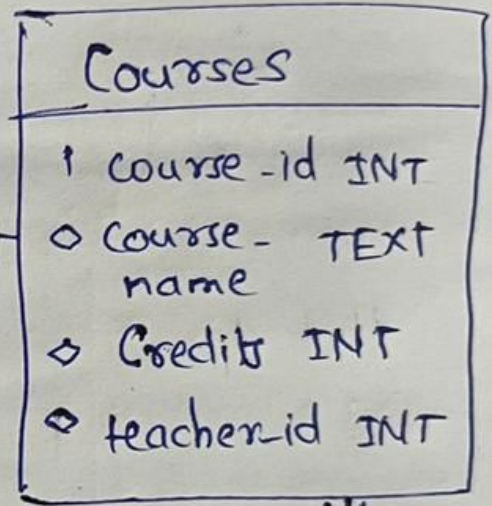 Courses
course-id INT
course- TEXT
name
Credits INT
teacher-id INT